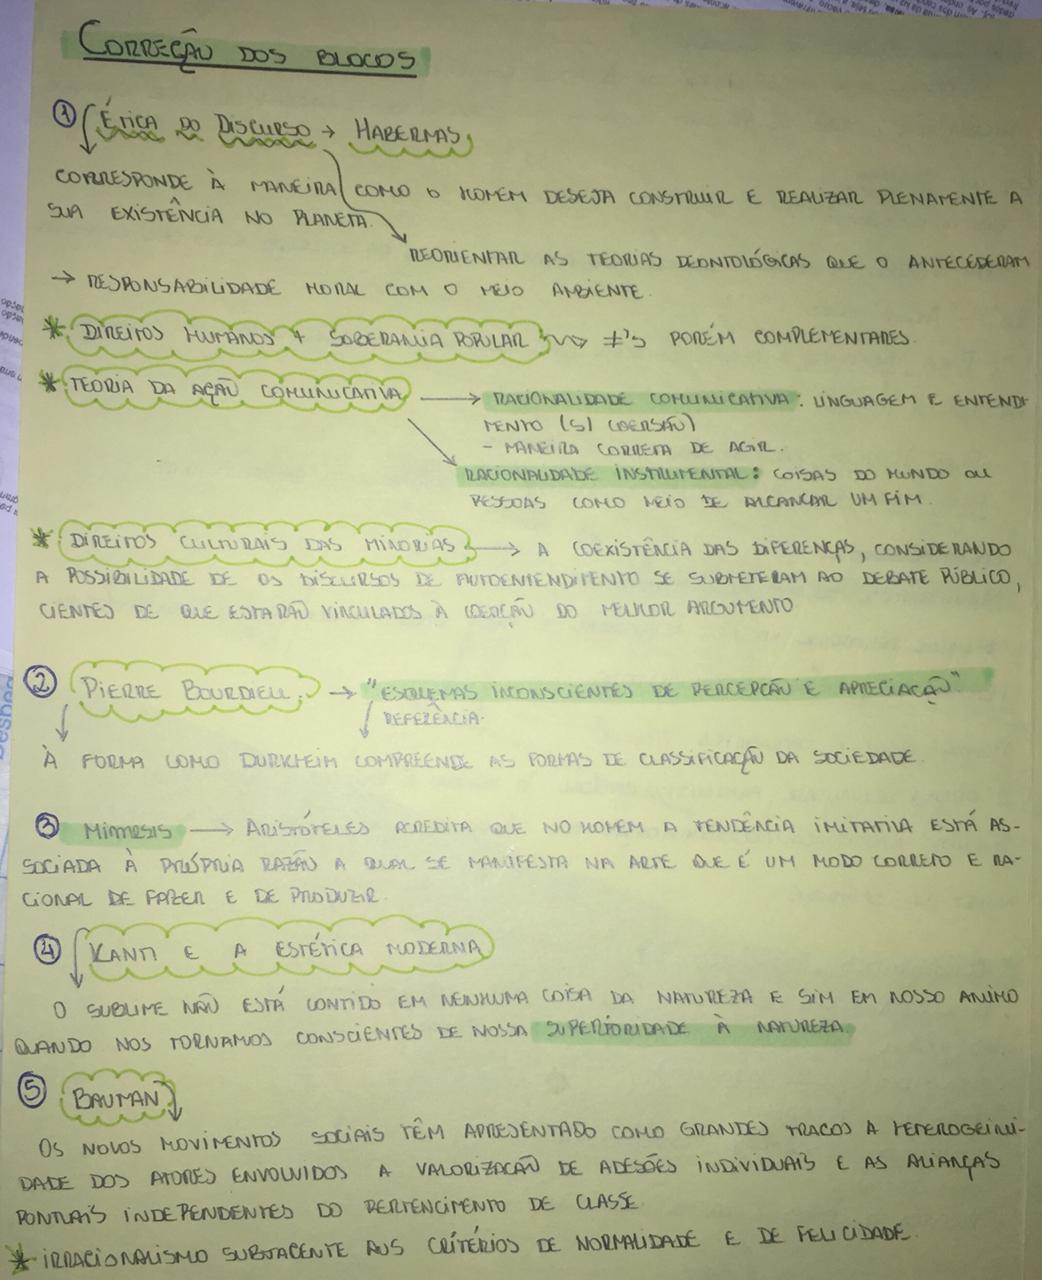 CORREÇÃO DOS BLOCOS
① ÉTICA DO DISCURSO → HABERMAS
CORRESPONDE À MANEIRA COMO O HOMEM DESEJA CONSTRUIR E REALIZAR PLENAMENTE A
SUA EXISTÊNCIA NO PLANETA.
REORIENTAR AS TEORIAS DEONTOLÓGICAS QUE O ANTECEDERAM
→ RESPONSABILIDADE MORAL COM O MEIO AMBIENTE.
* DIREITOS HUMANOS + SOBERANIA POPULAR ⇝ ≠'s PORÉM COMPLEMENTARES.
* TEORIA DA AÇÃO COMUNICATIVA → RACIONALIDADE COMUNICATIVA: LINGUAGEM E ENTENDI-
MENTO (S/ COERSÃO)
- MANEIRA CORRETA DE AGIR.
RACIONALIDADE INSTRUMENTAL: COISAS DO MUNDO OU
PESSOAS COMO MEIO DE ALCANÇAR UM FIM.
* DIREITOS CULTURAIS DAS MINORIAS → A COEXISTÊNCIA DAS DIFERENÇAS, CONSIDERANDO
A POSSIBILIDADE DE OS DISCURSOS DE AUTOENTENDIMENTO SE SUBMETERAM AO DEBATE PÚBLICO,
CIENTES DE QUE ESTARÃO VINCULADOS À COERÇÃO DO MELHOR ARGUMENTO
② PIERRE BOURDIEU. → "ESQUEMAS INCONSCIENTES DE PERCEPÇÃO E APRECIAÇÃO"
REFERÊNCIA.
À FORMA COMO DURKHEIM COMPREENDE AS FORMAS DE CLASSIFICAÇÃO DA SOCIEDADE.
③ MIMESIS → ARISTÓTELES ACREDITA QUE NO HOMEM A TENDÊNCIA IMITATIVA ESTÁ AS-
SOCIADA À PRÓPRIA RAZÃO A QUAL SE MANIFESTA NA ARTE QUE É UM MODO CORRETO E RA-
CIONAL DE FAZER E DE PRODUZIR.
④ KANT E A ESTÉTICA MODERNA
O SUBLIME NÃO ESTÁ CONTIDO EM NENHUMA COISA DA NATUREZA E SIM EM NOSSO ANIMO
QUANDO NOS TORNAMOS CONSCIENTES DE NOSSA SUPERIORIDADE À NATUREZA.
⑤ BAUMAN
OS NOVOS MOVIMENTOS SOCIAIS TÊM APRESENTADO COMO GRANDES TRAÇOS A HETEROGEINI-
DADE DOS ATORES ENVOLVIDOS A VALORIZAÇÃO DE ADESÕES INDIVIDUAIS E AS ALIANÇAS
PONTUAIS INDEPENDENTES DO PERTENCIMENTO DE CLASSE.
* IRRACIONALISMO SUBJACENTE AOS CRITÉRIOS DE NORMALIDADE E DE FELICIDADE.